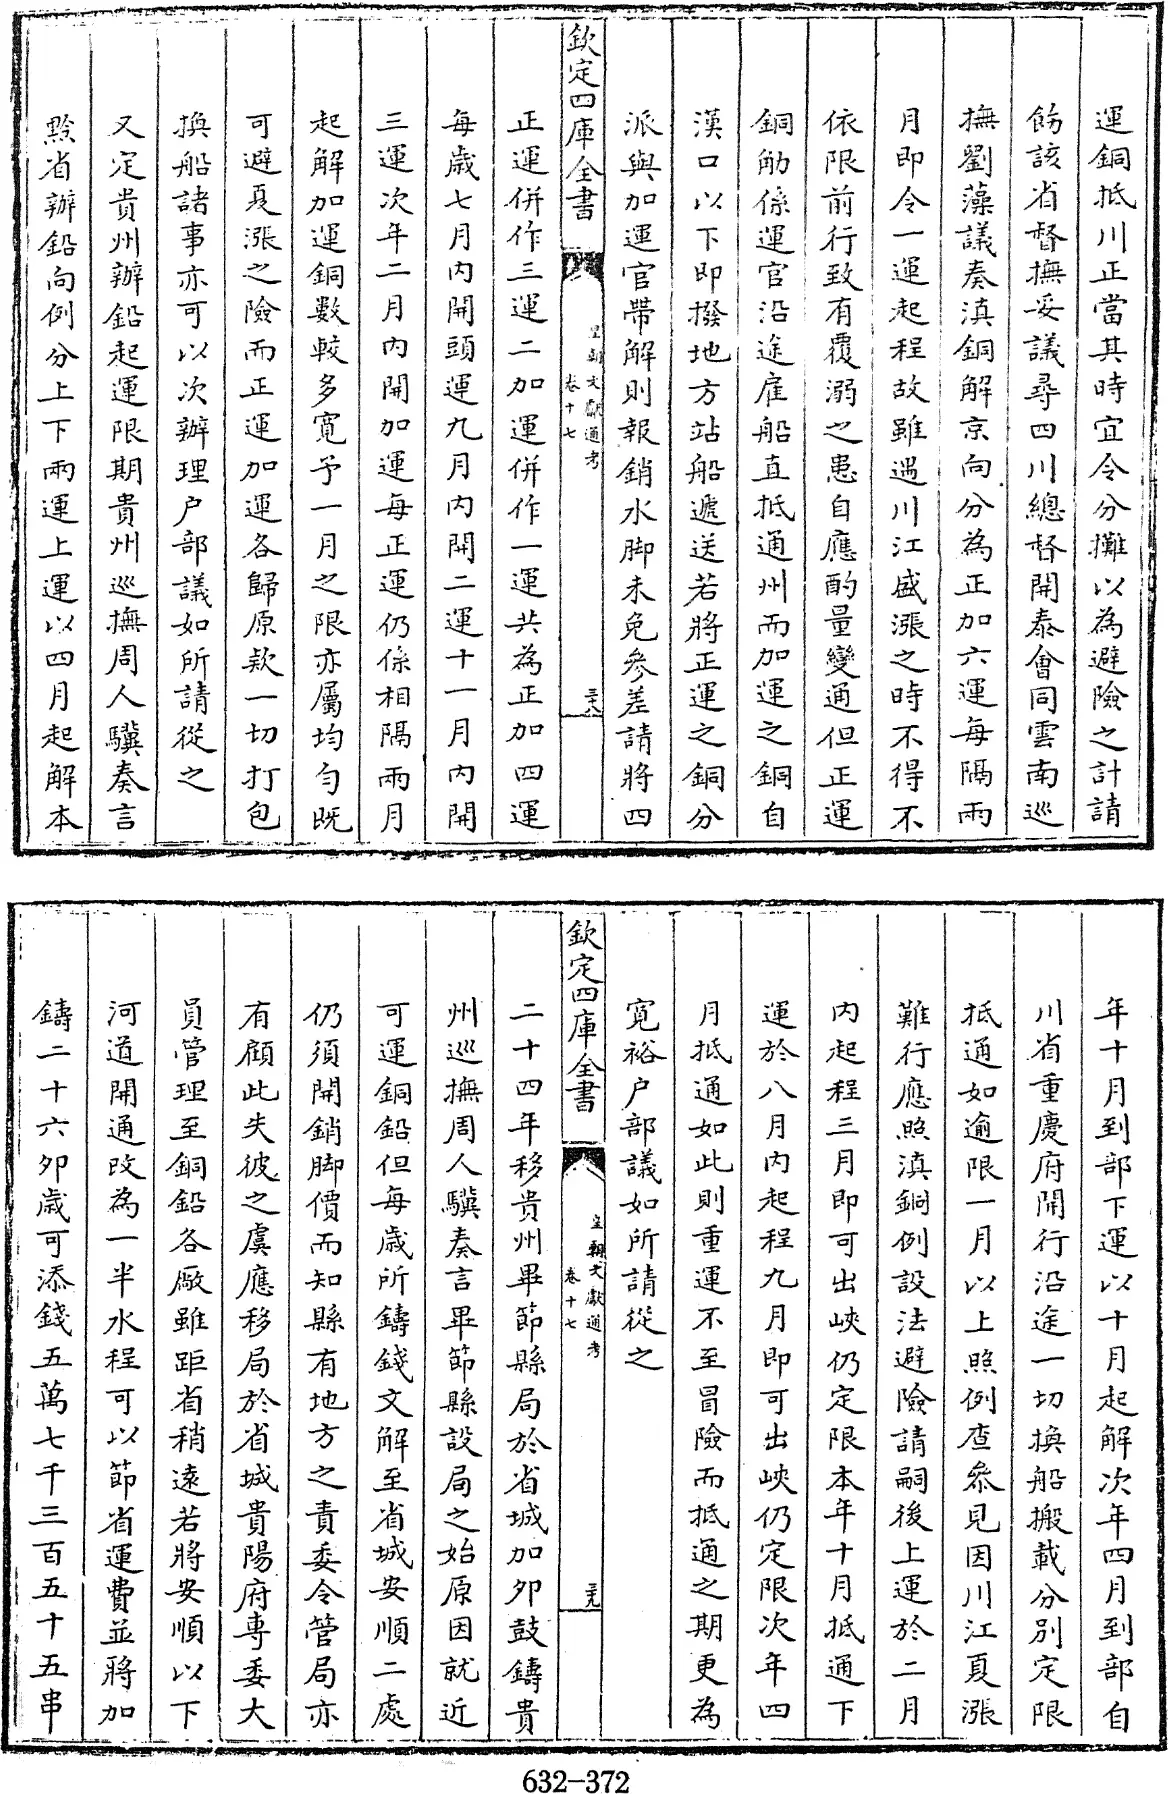 運銅抵川正當其時宜令分攤以為避險之計請
飭該省督撫妥議尋四川總督開泰會同雲南巡
撫劉藻議奏滇銅解京向分為正加六運每隔兩
月即令一運起程故雖遇川江盛漲之時不得不
依限前行致有覆溺之患自應酌量變通但正運
銅觔係運官沿途雇船直抵通州而加運之銅自
漢口以下即撥地方站船遞送若將正運之銅分
派與加運官帶解則報銷水脚未免參差請將四
欽定四庫全書
皇朝文獻通考
卷十七
三十八
正運併作三運二加運併作一運共為正加四運
每歲七月内開頭運九月内開二運十一月内開
三運次年二月内開加運每正運仍係相隔兩月
起解加運銅數較多寛予一月之限亦屬均匀既
可避夏漲之險而正運加運各歸原款一切打包
換船諸事亦可以次辦理户部議如所請從之
又定貴州辦鉛起運限期貴州巡撫周人驥奏言
黔省辦鉛向例分上下兩運上運以四月起解本
年十月到部下運以十月起解次年四月到部自
川省重慶府開行沿途一切換船搬載分別定限
抵通如逾限一月以上照例查叅見因川江夏漲
難行應照滇銅例設法避險請嗣後上運於二月
内起程三月即可出峽仍定限本年十月抵通下
運於八月内起程九月即可出峽仍定限次年四
月抵通如此則重運不至冒險而抵通之期更為
寛裕户部議如所請從之
欽定四庫全書
皇朝文獻通考
卷十七
三十九
二十四年移貴州畢節縣局於省城加夘鼓鑄貴
州巡撫周人驥奏言畢節縣設局之始原因就近
可運銅鉛但每歲所鑄錢文解至省城安順二處
仍須開銷脚價而知縣有地方之責委令管局亦
有顧此失彼之虞應移局於省城貴陽府專委大
員管理至銅鉛各廠雖距省稍遠若將安順以下
河道開通改為一半水程可以節省運費並將加
鑄二十六夘歲可添錢五萬七千三百五十五串
632-372